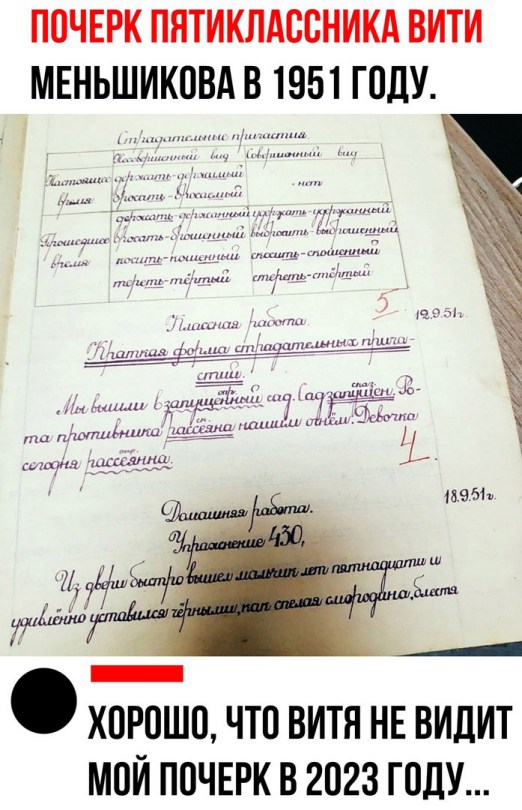 ПОЧЕРК ПЯТИКЛАССНИКА ВИТИ
МЕНЬШИКОВА В 1951 ГОДУ.
Страдательные причастия
Несовершенный вид Совершенный вид
Настоящее время держать-держимый нет
бросать-бросаемый
Прошедшее время держать-держанный удержать-удержанный
бросать-брошенный выбросить-выброшенный
косить-кошенный скосить-скошенный
тереть-тёртый стереть-стёртый
5
Классная работа. 12.9.51г.
Краткая форма страдательных прича-
стий.
опр. сказ.
Мы вышли в запущенный сад. Сад запущен. Ро-
ск.
та противника рассеяна нашим огнём. Девочка
опр.
сегодня рассеянна.
4
Домашняя работа. 18.9.51г.
Упражнение 430,
Из двери быстро вышел мальчик лет пятнадцати и
удивлённо уставился чёрными, как спелая смородина, блестя
ХОРОШО, ЧТО ВИТЯ НЕ ВИДИТ
МОЙ ПОЧЕРК В 2023 ГОДУ...